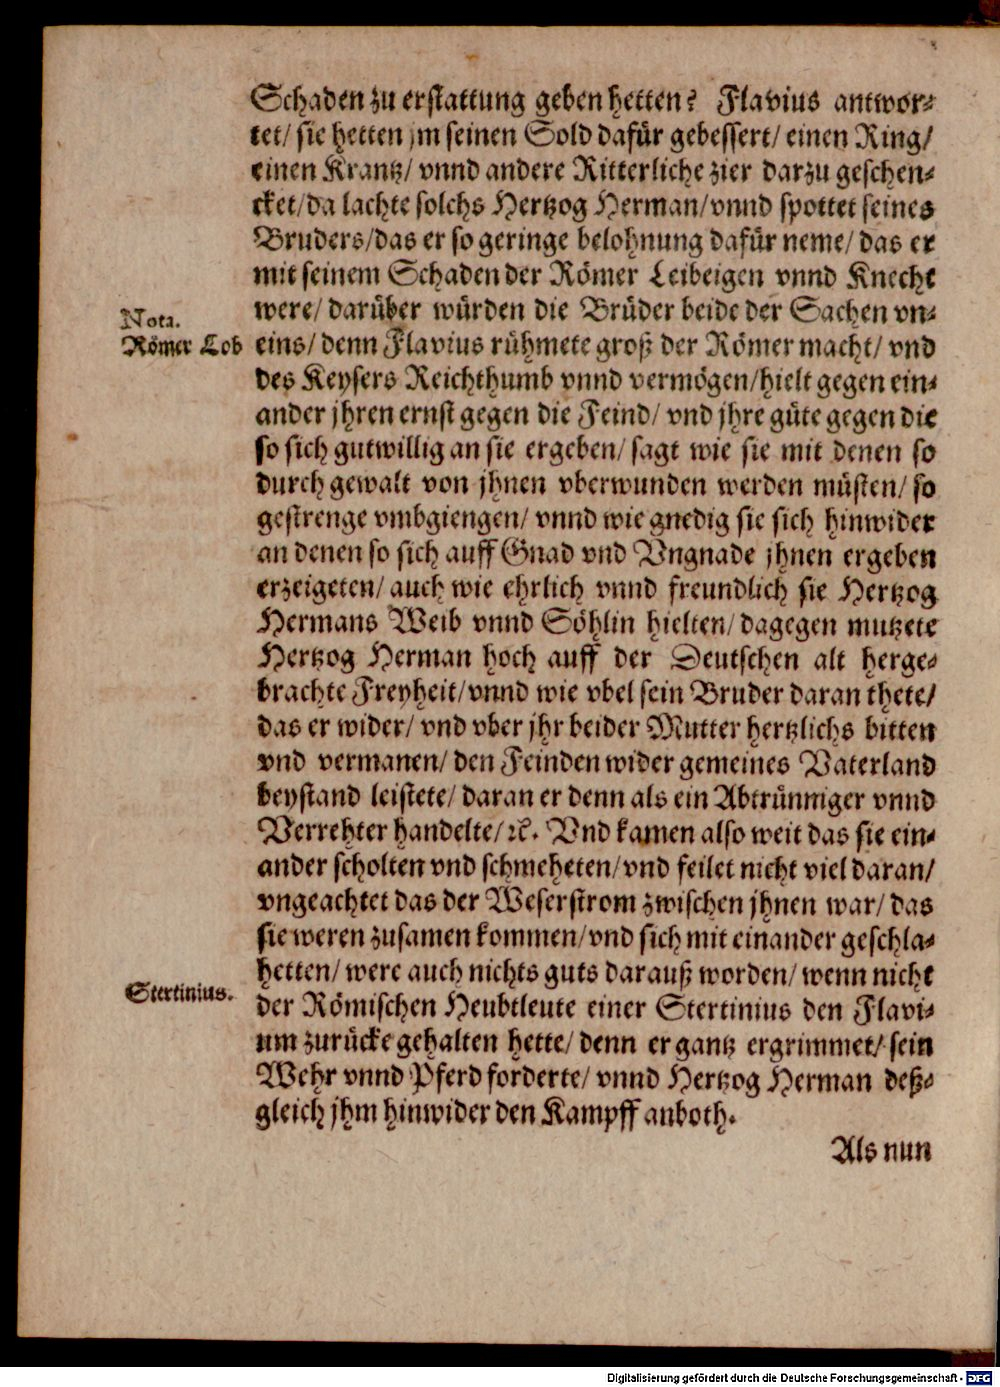 Schaden zu erstattung geben hetten? Flavius antwor-
tet/ sie hetten jm seinen Sold dafür gebessert/ einen Ring/
einen Krantz/ vnnd andere Ritterliche zier darzu geschen-
cket/ da lachte solchs Hertzog Herman/ vnnd spottet seines
Bruders/ das er so geringe belohnung dafür neme/ das er
mit seinem Schaden der Römer Leibeigen vnnd Knecht
were/ darüber würden die Brüder beide der Sachen vn-
Nota.
Römer Lob
eins/ denn Flavius rühmete groß der Römer macht/ vnd
des Keysers Reichthumb vnnd vermögen/ hielt gegen ein-
ander jhren ernst gegen die Feind/ vnd jhre güte gegen die
so sich gutwillig an sie ergeben/ sagt wie sie mit denen so
durch gewalt von jhnen vberwunden werden müsten/ so
gestrenge vmbgiengen/ vnnd wie gnedig sie sich hinwider
an denen so sich auff Gnad vnd Vngnade jhnen ergeben
erzeigeten/ auch wie ehrlich vnnd freundlich sie Hertzog
Hermans Weib vnnd Söhlin hielten/ dagegen mutzete
Hertzog Herman hoch auff der Deutschen alt herge-
brachte Freyheit/ vnnd wie vbel sein Bruder daran thete/
das er wider/ vnd vber jhr beider Mutter hertzlichs bitten
vnd vermanen/ den Feinden wider gemeines Vaterland
beystand leistete/ daran er denn als ein Abtrünniger vnnd
Verrehter handelte/ ꝛc. Vnd kamen also weit das sie ein-
ander scholten vnd schmeheten/ vnd feilet nicht viel daran/
vngeachtet das der Weserstrom zwischen jhnen war/ das
sie weren zusamen kommen/ vnd sich mit einander geschla-
hetten/ were auch nichts guts darauß worden/ wenn nicht
Stertinius.
der Römischen Heubtleute einer Stertinius den Flavi-
um zurücke gehalten hette/ denn er gantz ergrimmet/ sein
Wehr vnnd Pferd forderte/ vnnd Hertzog Herman deß-
gleich jhm hinwider den Kampff anboth.
Als nun
Digitalisierung gefördert durch die Deutsche Forschungsgemeinschaft - DFG